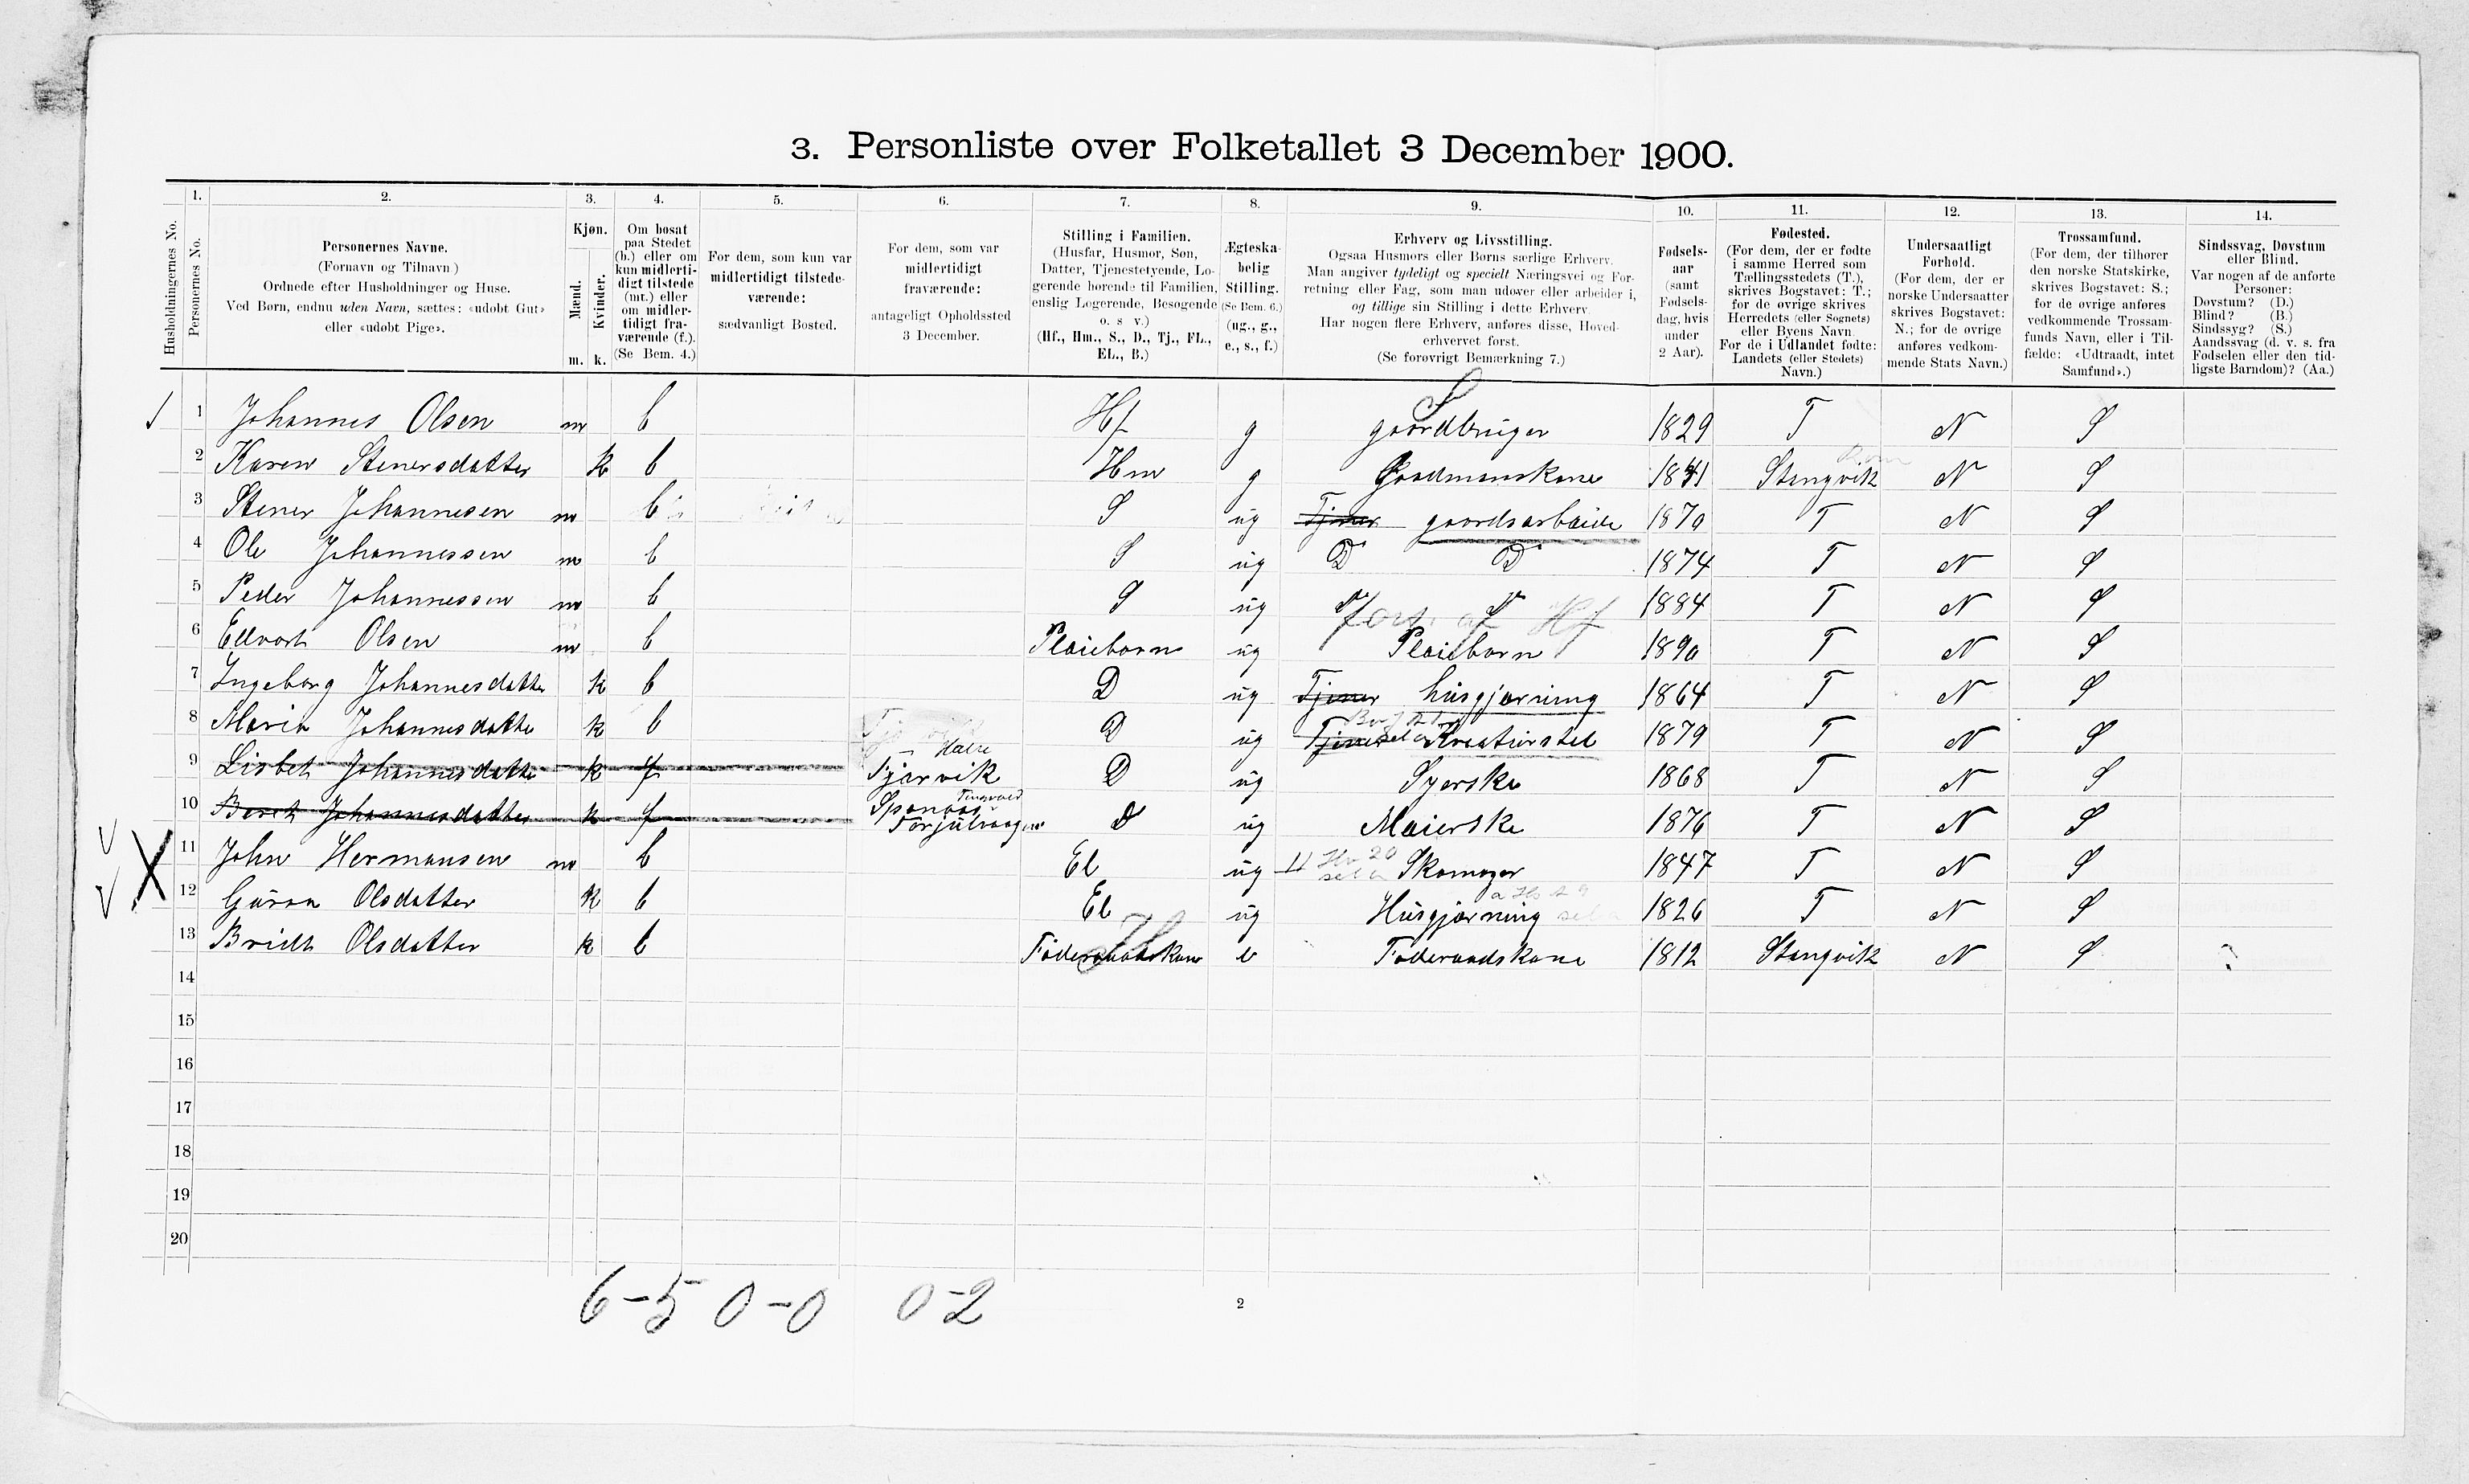 3. Personliste over Folketallet 3 December 1900.
Husholdningernes No.
1. Personernes No.
2. Personernes Navne.
(Fornavn og Tilnavn.)
Ordnede efter Husholdninger og Huse.
Ved Børn, endnu uden Navn, sættes: «udøbt Gut»
eller «udøbt Pige».
3. Kjøn.
Mænd. m.
Kvinder. k.
4. Om bosat
paa Stedet
(b.) eller om
kun midlerti-
digt tilstede
(mt.) eller
om midler-
tidigt fra-
værende (f.).
(Se Bem. 4.)
5. For dem, som kun var
midlertidigt tilstede-
værende:
sædvanligt Bosted.
6. For dem, som var
midlertidigt
fraværende:
antageligt Opholdssted
3 December.
7. Stilling i Familien.
(Husfar, Husmor, Søn,
Datter, Tjenestetyende, Lo-
gerende hørende til Familien,
enslig Logerende, Besøgende
o. s. v.)
(Hf., Hm., S., D., Tj., FL.,
EL., B.)
8. Ægteska-
belig
Stilling.
(Se Bem. 6.)
(ug., g.,
e., s., f.)
9. Erhverv og Livsstilling.
Ogsaa Husmors eller Børns særlige Erhverv.
Man angiver tydeligt og specielt Næringsvei og For-
retning eller Fag, som man udøver eller arbeider i,
og tillige sin Stilling i dette Erhverv.
Har nogen flere Erhverv, anføres disse, Hoved-
erhvervet først.
(Se forøvrigt Bemærkning 7.)
10. Fødsels-
aar
(samt
Fødsels-
dag, hvis
under
2 Aar).
11. Fødested.
(For dem, der er fødte
i samme Herred som
Tællingsstedets (T.),
skrives Bogstavet: T.;
for de øvrige skrives
Herredets (eller Sognets)
eller Byens Navn.
For de i Udlandet fødte:
Landets (eller Stedets)
Navn.)
12. Undersaatligt
Forhold.
(For dem, der er
norske Undersaatter
skrives Bogstavet:
N.; for de øvrige
anføres vedkom-
mende Stats Navn.)
13. Trossamfund.
(For dem, der tilhører
den norske Statskirke,
skrives Bogstavet: S.;
for de øvrige anføres
vedkommende Trossam-
funds Navn, eller i Til-
fælde: «Udtraadt, intet
Samfund».)
14. Sindssvag, Døvstum
eller Blind.
Var nogen af de anførte
Personer:
Døvstum? (D.)
Blind? (B.)
Sindssyg? (S.)
Aandssvag (d. v. s. fra
Fødselen eller den tid-
ligste Barndom)? (Aa.)
1 Johannes Olsen m b Hf g S gaardbruger 1829 T N S
2 Karen Stenersdatter k b Hm g Gaardmanskone 1841 Stangvik N S
3 Stener Johannesen m b S ug Tjener gaardsarbeide 1870 T N S
4 Ole Johannessen m b S ug D D 1874 T N S
5 Peder Johannessen m b S ug 1884 T N S
6 Edvart Olsen m b Pleiebarn ug fors. af Hf Pleiebarn 1890 T N S
7 Ingeborg Johannesdatter k b D ug Tjener husgjørning 1864 T N S
8 Maria Johannesdatter k b D ug Tjener Kreaturstel 1879 T N S
9 Lisbet Johannesdatter k f Halse Fjærvik D ug Syerske 1868 T N S
10 Beret Johannesdatter k f Spanaas Tingvold Torjulvaagen D ug Maierske 1876 T N S
11 John Hermansen m b El ug Skomager 1847 T N S
12 Guroa Olsdatter k b El ug Husgjørning 1826 T N S
13 Bridt Olsdatter k b Føderaadskone e Føderaadskone 1812 Stangvik N S
14
15
16
17
18
19
20
6-5 0-0 0-2
2